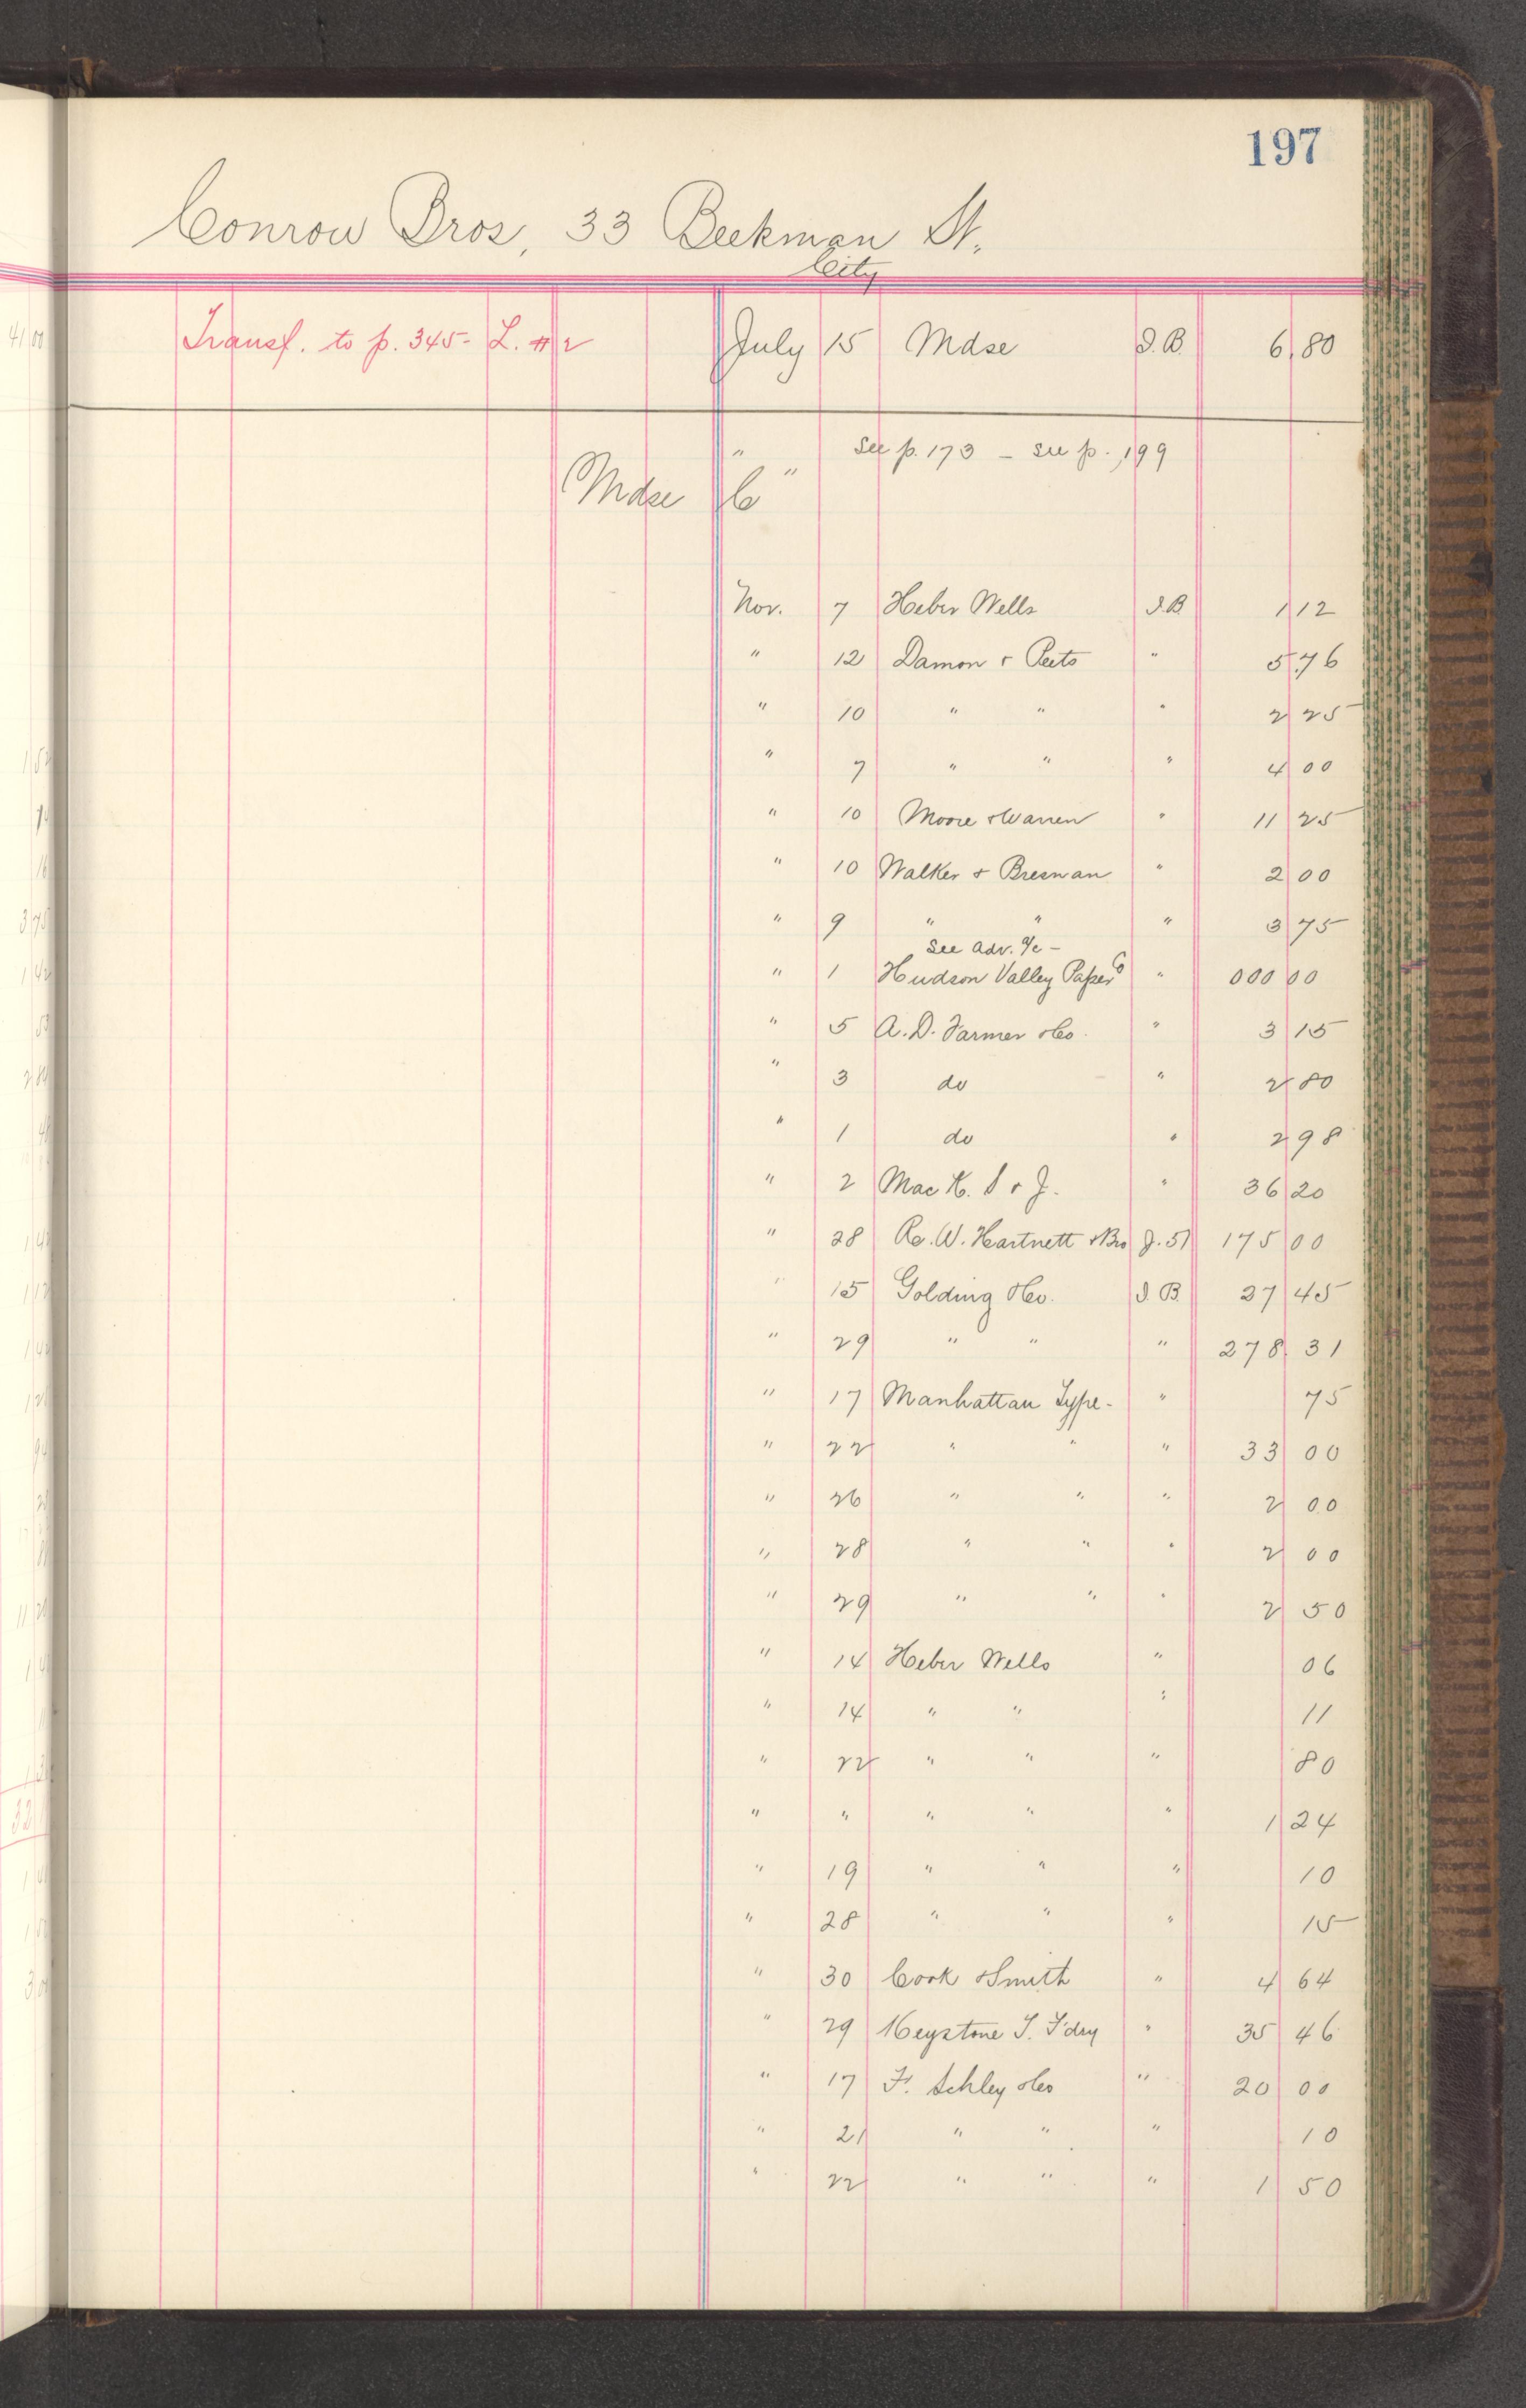 197
Conrow Bros, 33 Beekman St.
City
Transf. to p. 345- L. #2 July 15 Mdse I.B. 6.80
" See p. 173 - see p. 199
Mdse C "
Nov. 7 Heber Wells I.B. 1 12
" 12 Damon & Peets " 5.76
" 10 " " " 2 25
" 7 " " " 4 00
" 10 Moore & Warren " 11 25
" 10 Walker & Bresnan " 2 00
" 9 " " " 3 75
See Adv. a/c -
" 1 Hudson Valley Paper Co " 000 00
" 5 A.D. Farmer & Co. " 3 15
" 3 do " 2 80
" 1 do " 2 98
" 2 Mac K. S & J. " 36 20
" 28 R. W. Hartnett & Bro J. 51 175 00
" 15 Golding & Co. I.B. 27 45
" 29 " " " 278. 31
" 17 Manhattan Type- " 75
" 22 " " " 33 00
" 26 " " " 2 00
" 28 " " " 2 00
" 29 " " " 2 50
" 14 Heber Wells " 06
" 14 " " " 11
" 22 " " " 80
" " " " " 1 24
" 19 " " " 10
" 28 " " " 15
" 30 Cook & Smith " 4 64
" 29 Keystone T. F'dry " 35 46
" 17 F. Schley & Co " 20 00
" 21 " " " 10
" 22 " " " 1 50